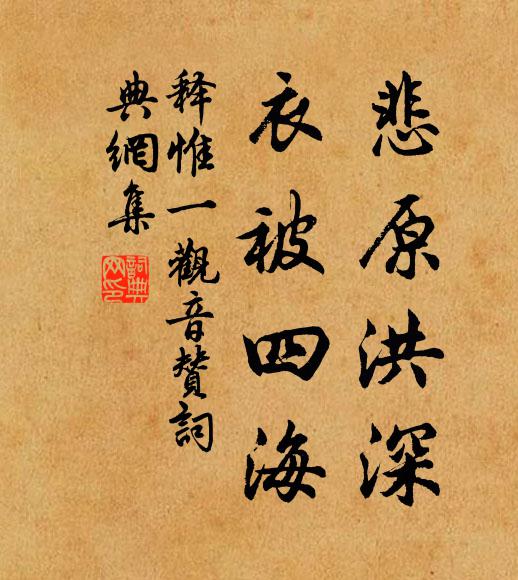 悲原洪深
衣被四海
释惟一觀音賛詞
典網集
詞典网印